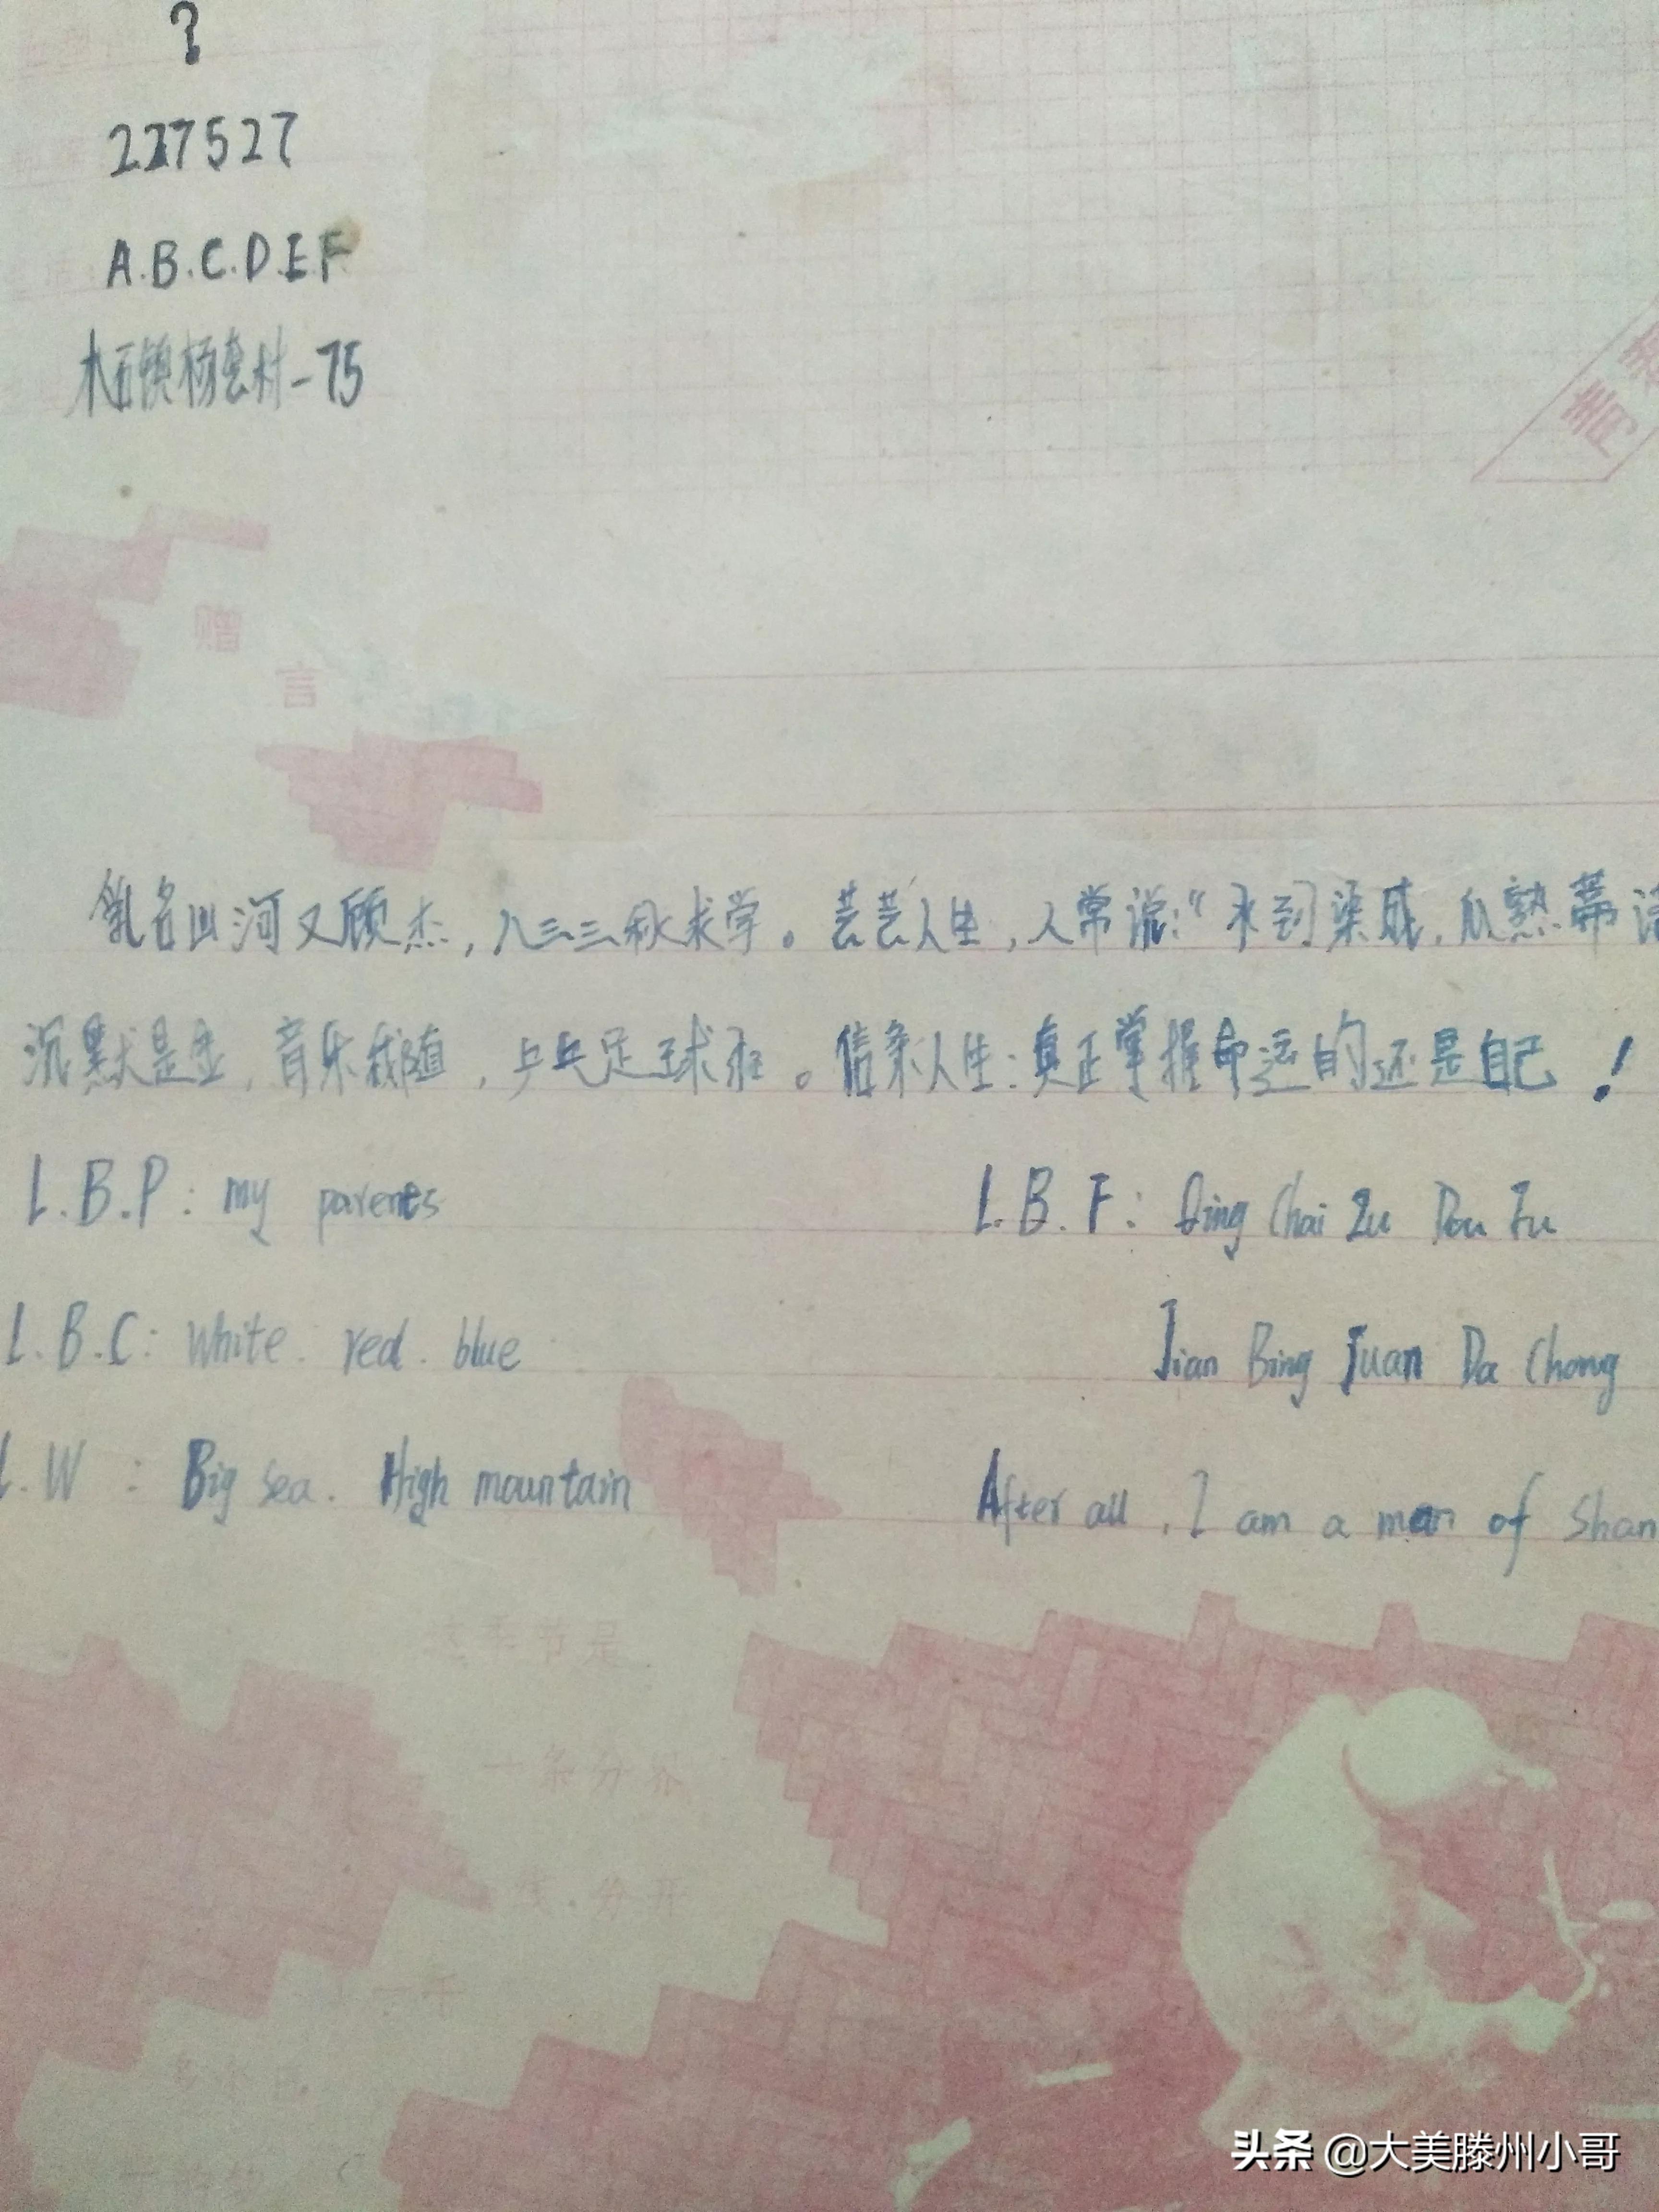 ?
227527
A.B.C.D.E.F
木石镇杨套村-75
青春
赠
言
乳名山河又顾杰,八三三秋求学。芸芸人生,人常说:"水到渠成,瓜熟蒂
沉默是金,音乐我随,乒乓足球狂。信条人生:真正掌握命运的还是自己!
I.B.P: my parents
I.B.F: Qing Chai Zu Dou Fu
I.B.C: White. red. blue
Jian Bing Juan Da Chong
I.W : Big sea. High mountain
After all, I am a man of Shan
这季节是
一条分界
线.分开
头条 @大美滕州小哥